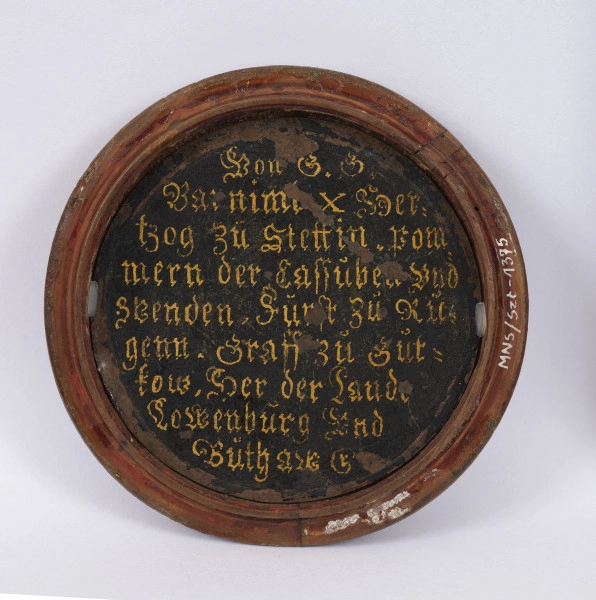 Von G. G.
Barnimus X Her:
tzog zu Stettin. pom
mern der Cassuben Vnd
Wenden. Fürst zu Rü:
genn. Graff zu Güt:
kow, Her der Lande
Lowenburg Vnd
Buthaw
MNS/Szt-1375